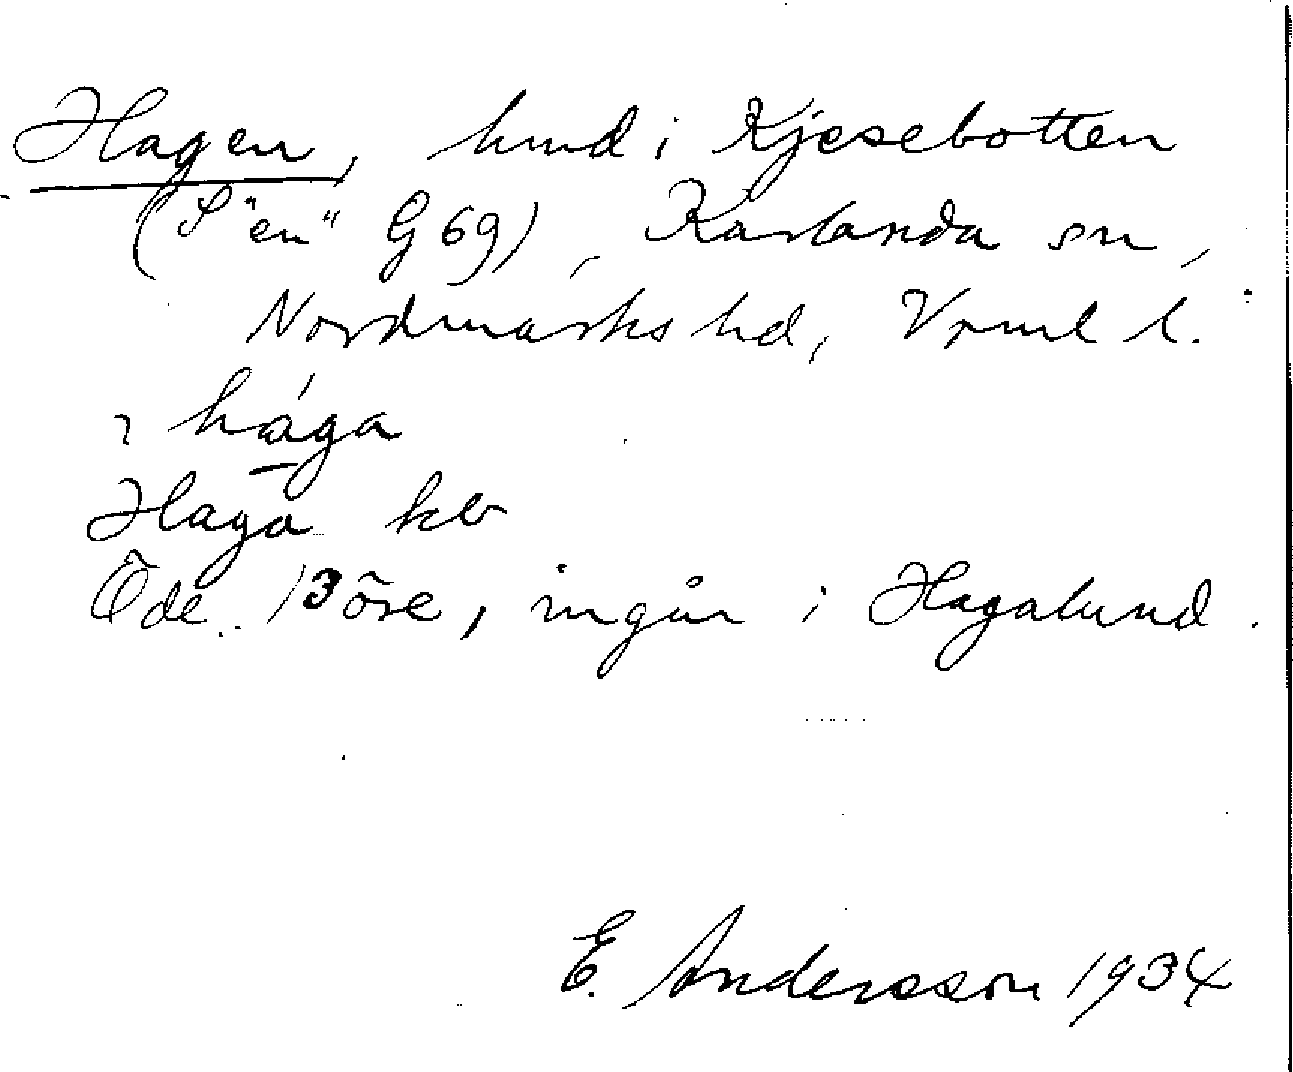 Hagen, hmd i Kjesebotten
(S "en" G 69), Karlanda sn,
Nordmarks hd, Vrml l.
i hága
Haga kb
Öde. 13 öre, ingår i Hagalund.
E. Andersson 1934